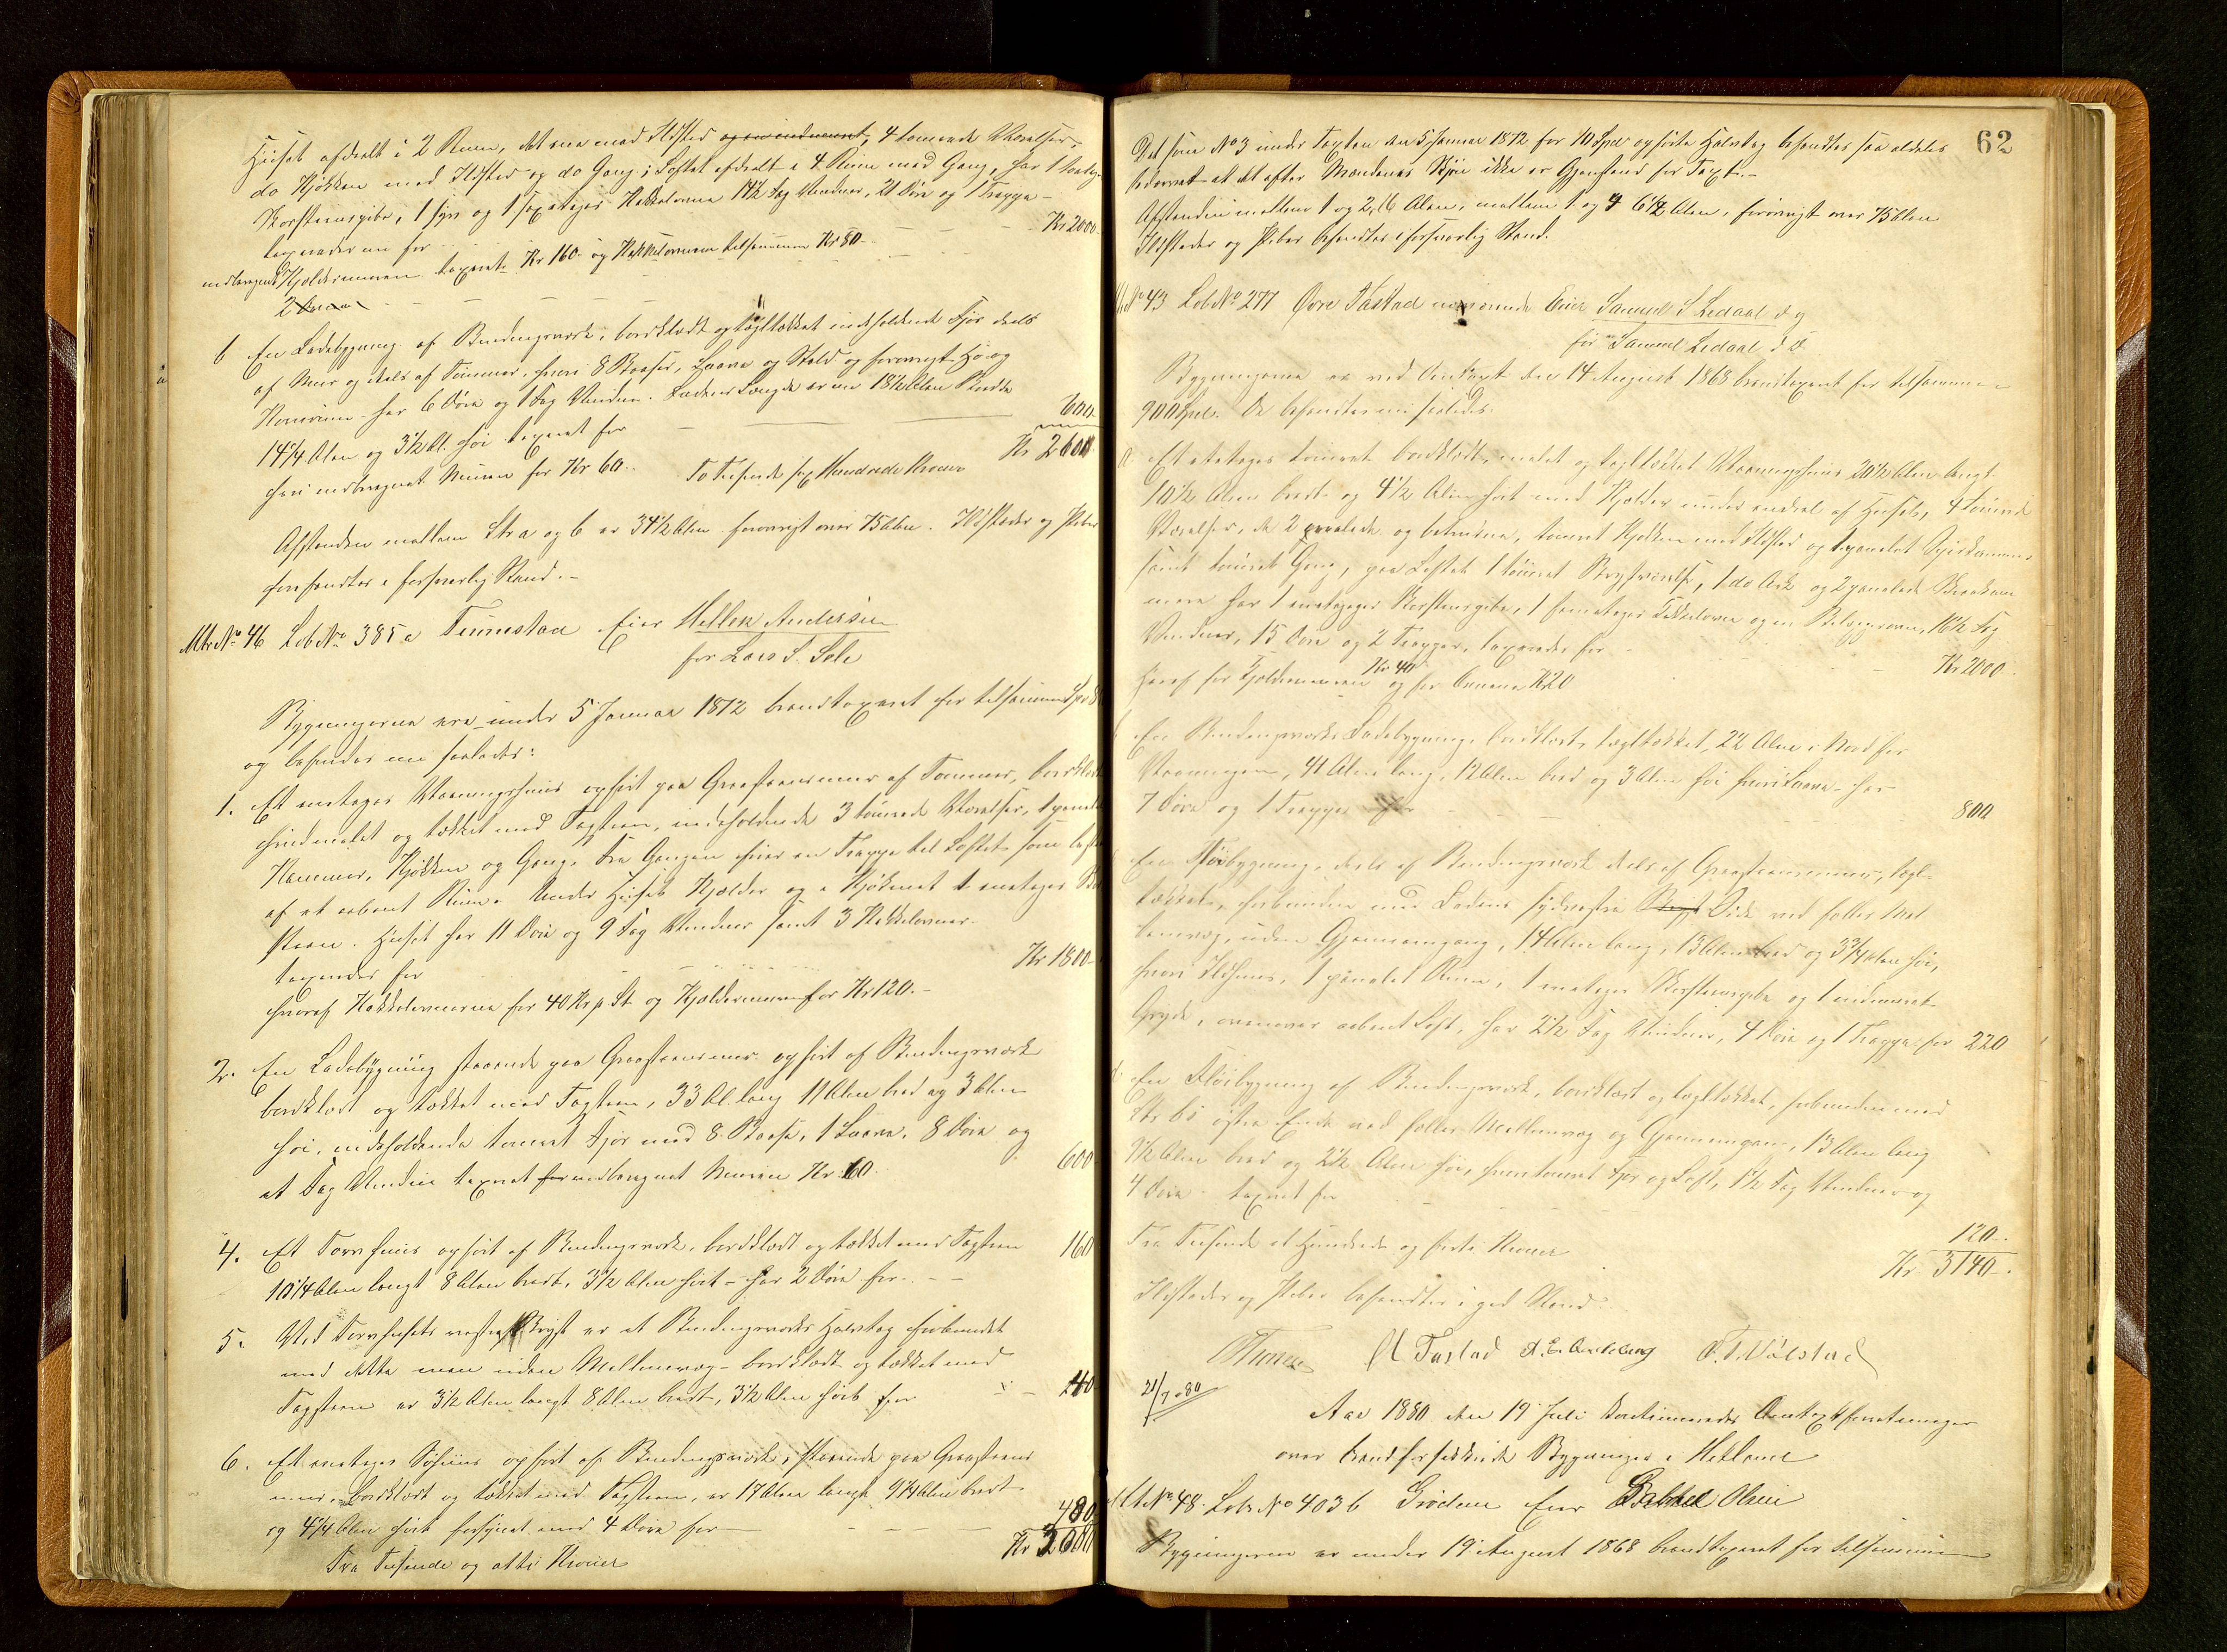 Huset afdeelt i 2 Rum, det ene med Ildsted og en indmuret, 4 tømrede Værelser,
do Kjøkken med Ildsted og do Gang; Loftet afdeelt i 4 Rum med Gang, har 1
Skorsteenspibe, 1 og 1 Kakkelovne 14½ Fag Vinduer, 21 Døre og 1 Trappe
taxeredes nu for Kr 2000
indberegnet Kjældermuren taxeret Kr 160 og Kakkelovnene tilsammen Kr 80
2
b En Ladebygning af Bindingsværk, bordklædt og tagtækket indeholdende Fjøs deels
af Muur og deels af Tømmer, hvori 8 Baase, Laave og Stald og forøvrigt Hø- og
Kornrum har 6 Døre og 1 Fag Vinduer. Ladens Længde er nu 18½ Alen Bredde
14¼ Alen og 3½ Al. høi taxeret for 600
heri indberegnet Muren for Kr 60. To Tusinde sex Hundrede Kroner Kr 2600
Afstanden mellem Litr a og b er 34½ Alen forøvrigt over 75 Alen. Ildsteder og Piber
forefandtes i forsvarlig Stand.
Matr No 46 Lob No 385a Finnestad Eier Hellek Andersen
for Lars S. Sele
Bygningerne ere under 5 Januar 1872 brandtaxeret for tilsammen Spd 8
og befindes nu saaledes:
1. Et eneetages Vaaningshuus opført paa Graasteensmuur af Tømmer, bordklædt
hvidmalet og tækket med Tagsteen, indeholdende 3 tømrede Værelser, 1
Kammer, Kjøkken og Gang. Fra Gangen fører en Trappe til Loftet som bestaar
af et aabent Rum. Under Huset Kjælder og i Kjøkkenet 1 eneetages
steen. Huset har 11 Døre og 9 Fag Vinduer samt 3 Kakkelovner
taxeredes for Kr 1800
hvoraf Kakkelovnerne for 40 Kr p St og Kjældermuren for Kr 120.
2. En Ladebygning staaende paa Graasteensmuur opført af Bindingsværk
bordklædt og tækket med Tagsteen, 33 Al. lang 11 Alen bred og 3 Alen
høi, indeholdende tømret Fjøs med 8 Baase, 1 Laave, 8 Døre og
et Fag Vinduer taxeret for indberegnet Muren Kr 60. 600
4. Et Tørvhuus opført af Bindingsværk, bordklædt og tækket med Tagsteen 160
10¼ Alen langt 8 Alen bredt, 3½ Alen høit - har 2 Døre for
5. Ved Tørvhusets vestre Gavl er et Bindingsværks Halvtag forbundet
med dette men uden Mellemvæg - bordklædt og tækket med
Tagsteen er 3½ Alen langt 8 Alen bredt, 3½ Alen høit for 40
6. Et eneetages Søhuus opført af Bindingsværk, staaende paa Graasteens
muur, bordklædt og tækket med Tagsteen, er 17 Alen langt 9¼ Alen bredt
og 4¼ Alen høit forsynet med 4 Døre for 480
Tre Tusinde og otti Kroner Kr 3080
62
Det som No 3 under Taxten den 5 Januar 1872 for 10 Spd opførte Halvtag befandtes saa aldeles
at det efter Mændenes Skjøn ikke er Gjenstand for Taxt.
Afstanden mellem 1 og 2, 16 Alen, mellem 1 og 4 6½ Alen, forøvrigt over 75 Alen
Ildsteder og Piber befandtes i forsvarlig Stand.
M No 43 Lob No 277 Øvre Tastad nuværende Eier Samuel S Ledaal d y
før Samuel Ledaal d æ
Bygningerne er ved Omtaxt den 14 August 1868 brandtaxeret for tilsammen
900 Spd. De befandtes nu saaledes:
a. Et eetages tømret bordklædt, malet og tagtækket Vaaningshuus 20½ Alen langt
10½ Alen bredt og 4½ Alen høit med Kjælder under endeel af Huset, 4 tømrede
Værelser, de 2 panelede og betrukne, tømret Kjøkken med Ildsted og 1 panelet Spiskammer
samt tømret Gang, paa Loftet 1 tømret Kvistværelse, 1 do Ark og 2 panelede
mere har 1 eneetages Skorsteenspibe, 1 Kakkelovn og en Bilæggerovn, 16½ Fag
Vinduer, 15 Døre og 2 Trapper, taxeredes for Kr 2000
Heraf for Kjældermuren Kr 40 og for Ovnene K 20
b En Bindingsværks Ladebygning, bordklædt, tagtækket, 22 Alen i Nord for
Vaaningen, 41 Alen lang, 12 Alen bred og 3 Alen høi hvori Laave - har
7 Døre og 1 Trappe for 800
c En Fløibygning, deels af Bindingsværk deels af Graasteensmuur, tagt-
tækket, forbunden med Ladens sydvestre Side ved fælles Mel
lemvæg, uden Gjennemgang, 14 Alen lang, 13 Alen bred og 3¾ Alen høi,
hvori Ildhuus, 1 panelet Rum, 1 eneetages Skorsteenspibe og 1 indmuret
Gryde, ovenover aabent Loft, har 2½ Fag Vinduer, 4 Døre og 1 Trappe for 220
d En Fløibygning af Bindingsværk, bordklædt og tagtækket, forbunden med
Litr b i østre Ende ved fælles Mellemvæg og Gjennemgang, 13 Alen lang
9½ Alen bred og 2½ Alen høi, hvori tømret Fjøs og Loft, 1½ Fag Vinduer og
4 Døre taxeret for 120
Tre Tusinde et Hundrede og førti Kroner Kr 3140.
Ildsteder og Piber befandtes i god Stand.
M Tastad A. E. Ankeberg O. T. Vølstad
21/7 80
Aar 1880 den 19 Juli kontinueredes Omtaxtforretninger
over brandforsikrede Bygninger i Hetland
M No 48 Lob No 403 b Grødem Eier Bertel Olsen
Bygningerne er under 19 August 1868 brandtaxeret for tilsammen